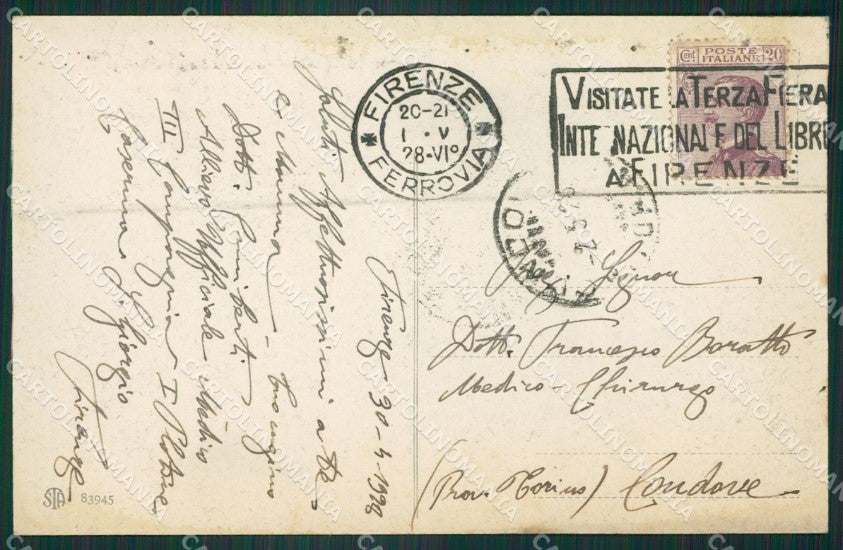 POSTE
ITALIANE
Cent 20
FIRENZE
20-21
1 · V
28-VI°
FERROVIA
VISITATE LA TERZA FIERA
INTERNAZIONALE DEL LIBRO
A FIRENZE
Firenze 30-4 1928
Saluti Affettuosissimi a Te
e Mamma -
Dott.
Allievo Ufficiale Medico
III Compagnia I Plotone
Caserma S. Giorgio
Firenze
Signor
Dott. Francesco Baratto
Medico-Chirurgo
(Prov. Torino) Condove
STA 83945
CARTOLINOMANIA